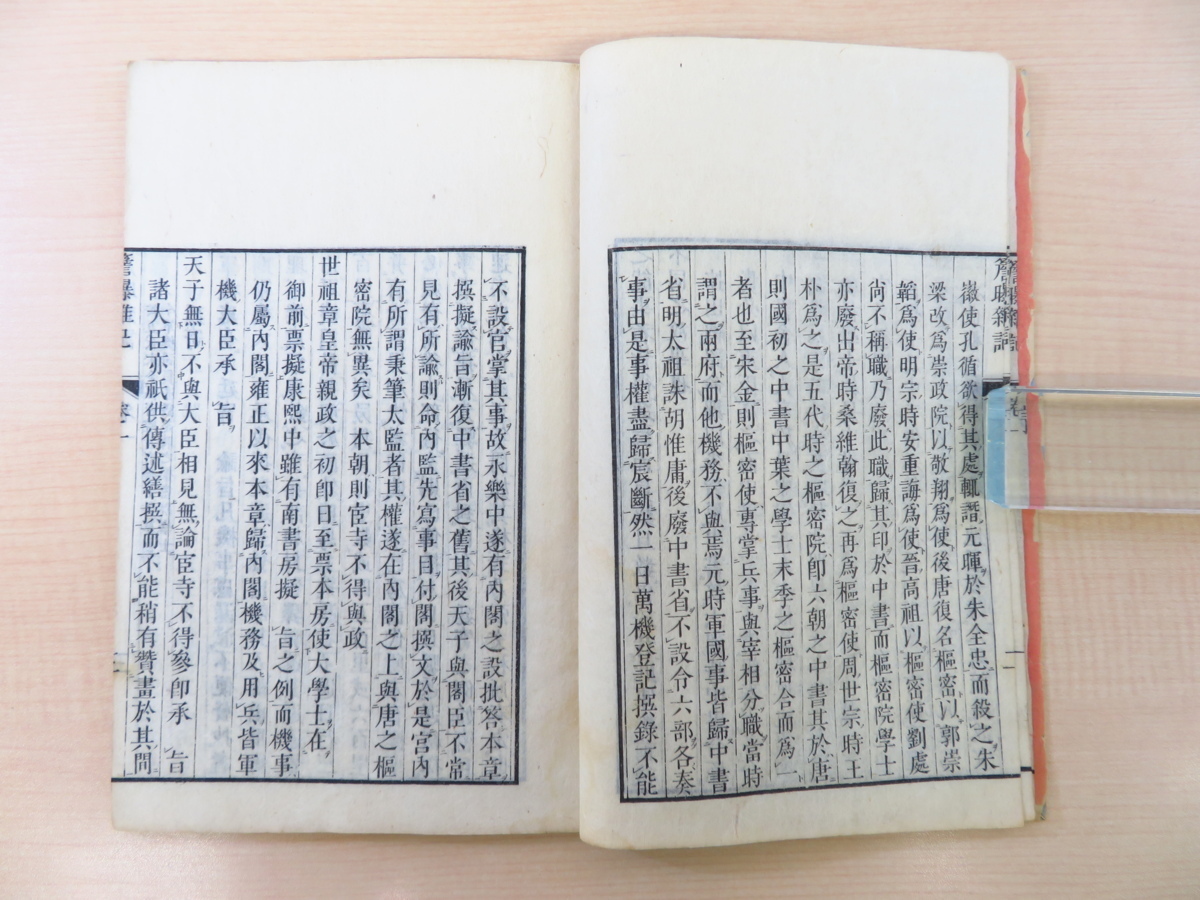 徽使孔循欲得其處輒譖元暉於朱全忠而殺之朱
梁改爲崇政院以敬翔爲使後唐復名樞密以郭崇
韜爲使明宗時安重誨爲使晉高祖以樞密使劉處
尙不稱職乃廢此職歸其印於中書而樞密院學士
亦廢出帝時桑維翰復之再爲樞密使周世宗時王
朴爲之是五代時之樞密院卽六朝之中書其於唐
則國初之中書中葉之學士末季之樞密合而爲一
者也至宋金則樞密使專掌兵事與宰相分職當時
謂之兩府而他機務不與焉元時軍國事皆歸中書
省明太祖誅胡惟庸後廢中書省不設令六部各奏
事由是事權盡歸宸斷然一日萬機登記撰錄不能
不設官掌其事故永樂中遂有內閣之設批答本章
撰擬諭旨漸復中書省之舊其後天子與閣臣不常
見有所諭則命內監先寫事目付閣撰文於是宮內
有所謂秉筆太監者其權遂在內閣之上與唐之樞
密院無異矣 本朝則宦寺不得與政
世祖章皇帝親政之初卽日至票本房使大學士在
御前票擬康熙中雖有南書房擬 旨之例而機事
仍屬內閣雍正以來本章歸內閣機務及用兵皆軍
機大臣承 旨
天子無日不與大臣相見無論宦寺不得參卽承 旨
諸大臣亦祇供傳述繕撰而不能稍有贊畫於其間